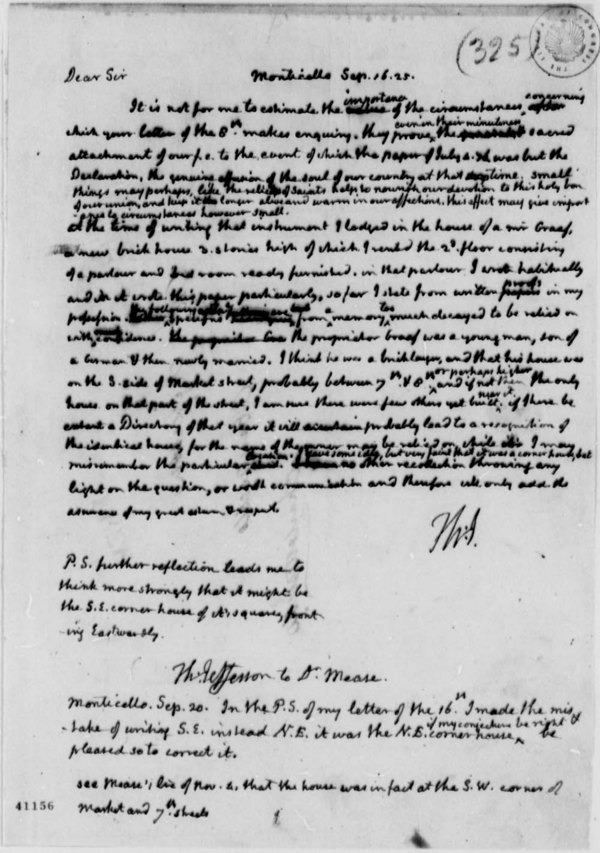 (325)
Dear Sir Monticello Sep. 16. 25.
It is not for me to estimate the importance of the circumstances concerning
which your letter of the 8th makes enquiry. they prove, even in their minuteness, the sacred
attachment of our f.c. to the event of which the paper of July 4. 76 was but the
Declaration, the genuine effusion of the soul of our country at that time. small
things may perhaps, like the relics of Saints help to nourish our devotion to this holy bond
of our union, and keep it longer alive and warm in our affections. this effect may give import
-ance to circumstances however small.
at the time of writing that instrument I lodged in the house of a mr Graaf,
a new brick house 3. stories high of which I rented the 2d floor consisting
of a parlour and bed room ready furnished. in that parlour I wrote habitually
and in it wrote this paper particularly. so far I state from written proofs in my
possession. the from a memory too much decayed to be relied on
with confidence. the proprietor Graaf was a young man, son of
a German & then newly married. I think he was a bricklayer, and that his house was
on the S. side of Market street, probably between 7th & 8th and if not then the only
or perhaps higher
house on that part of the street, I am sure there were few others near it yet built. if there be
extant a Directory of that year it will probably lead to a recognition of
the identical house, for the name of the owner may be relied on, while I may
misremember the particular location. I have some idea, but very faint that it was a corner house, but
no other recollection throwing any
light on the question, or worth communication and therefore will only add the
assurance of my great esteem & respect.
Th:J.
P.S. further reflection leads me to
think more strongly that it might be
the S.E. corner house of it's square, front
ing Eastwardly.
Th: Jefferson to Dr. Mease.
Monticello. Sep. 20. In the P.S. of my letter of the 16th I made the mis
-take of writing S.E. instead N.E. it was the N.E. corner house, if my conjecture be right &
be
pleased so to correct it.
see Mease's lre of Nov. 4. that the house was in fact at the S.W. corner of
Market and 7th streets
41156